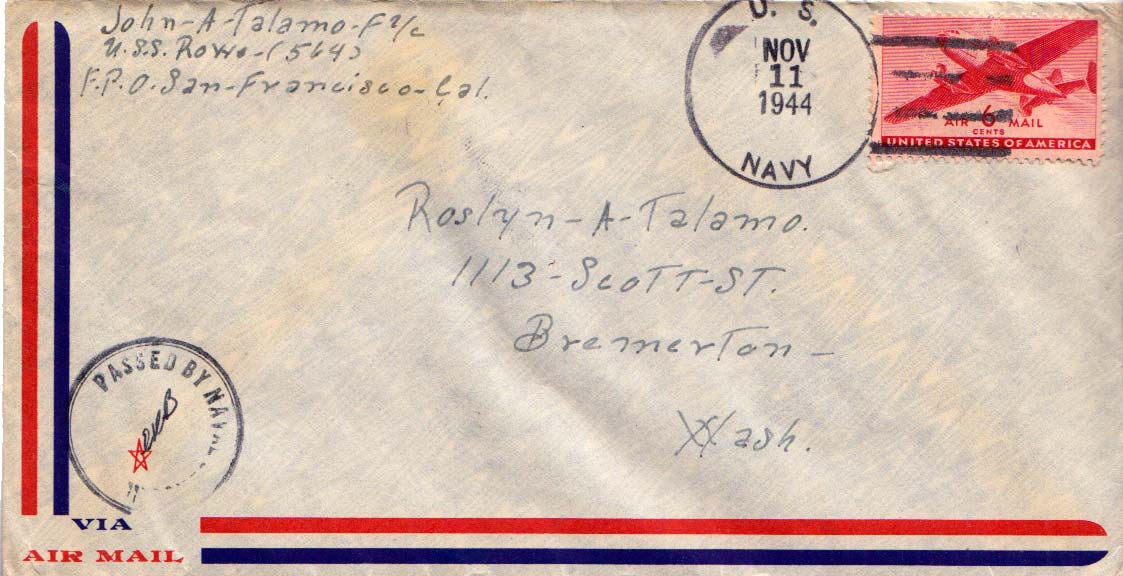 John-A-Talamo-F2/c
U.S.S. Rowe-(564)
F.P.O. San-Francisco-Cal.
U. S.
NOV
11
1944
NAVY
AIR 6 MAIL
CENTS
UNITED STATES OF AMERICA
Roslyn-A-Talamo.
1113-Scott-ST.
Bremerton-
Wash.
PASSED BY NAVAL
VIA
AIR MAIL